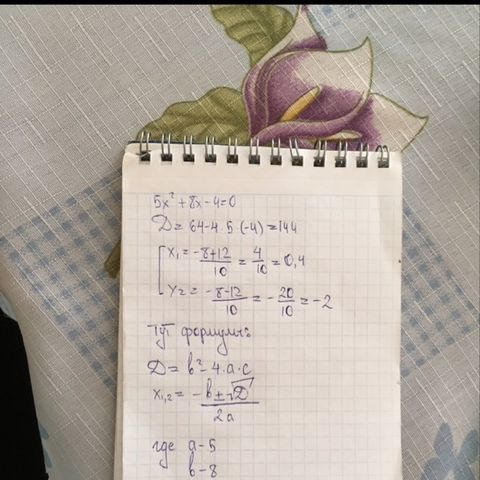 5x² + 8x - 4 = 0
D = 64 - 4 · 5 · (-4) = 144
[ x₁ = -8+12/10 = 4/10 = 0,4
x₂ = -8-12/10 = -20/10 = -2
Тут формулы:
D = b² - 4·a·c
x₁,₂ = -b±√D/2a
где a-5
b-8